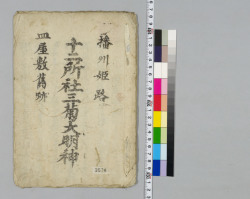 播州姫路
十二所社三菊大明神
皿屋敷舊跡